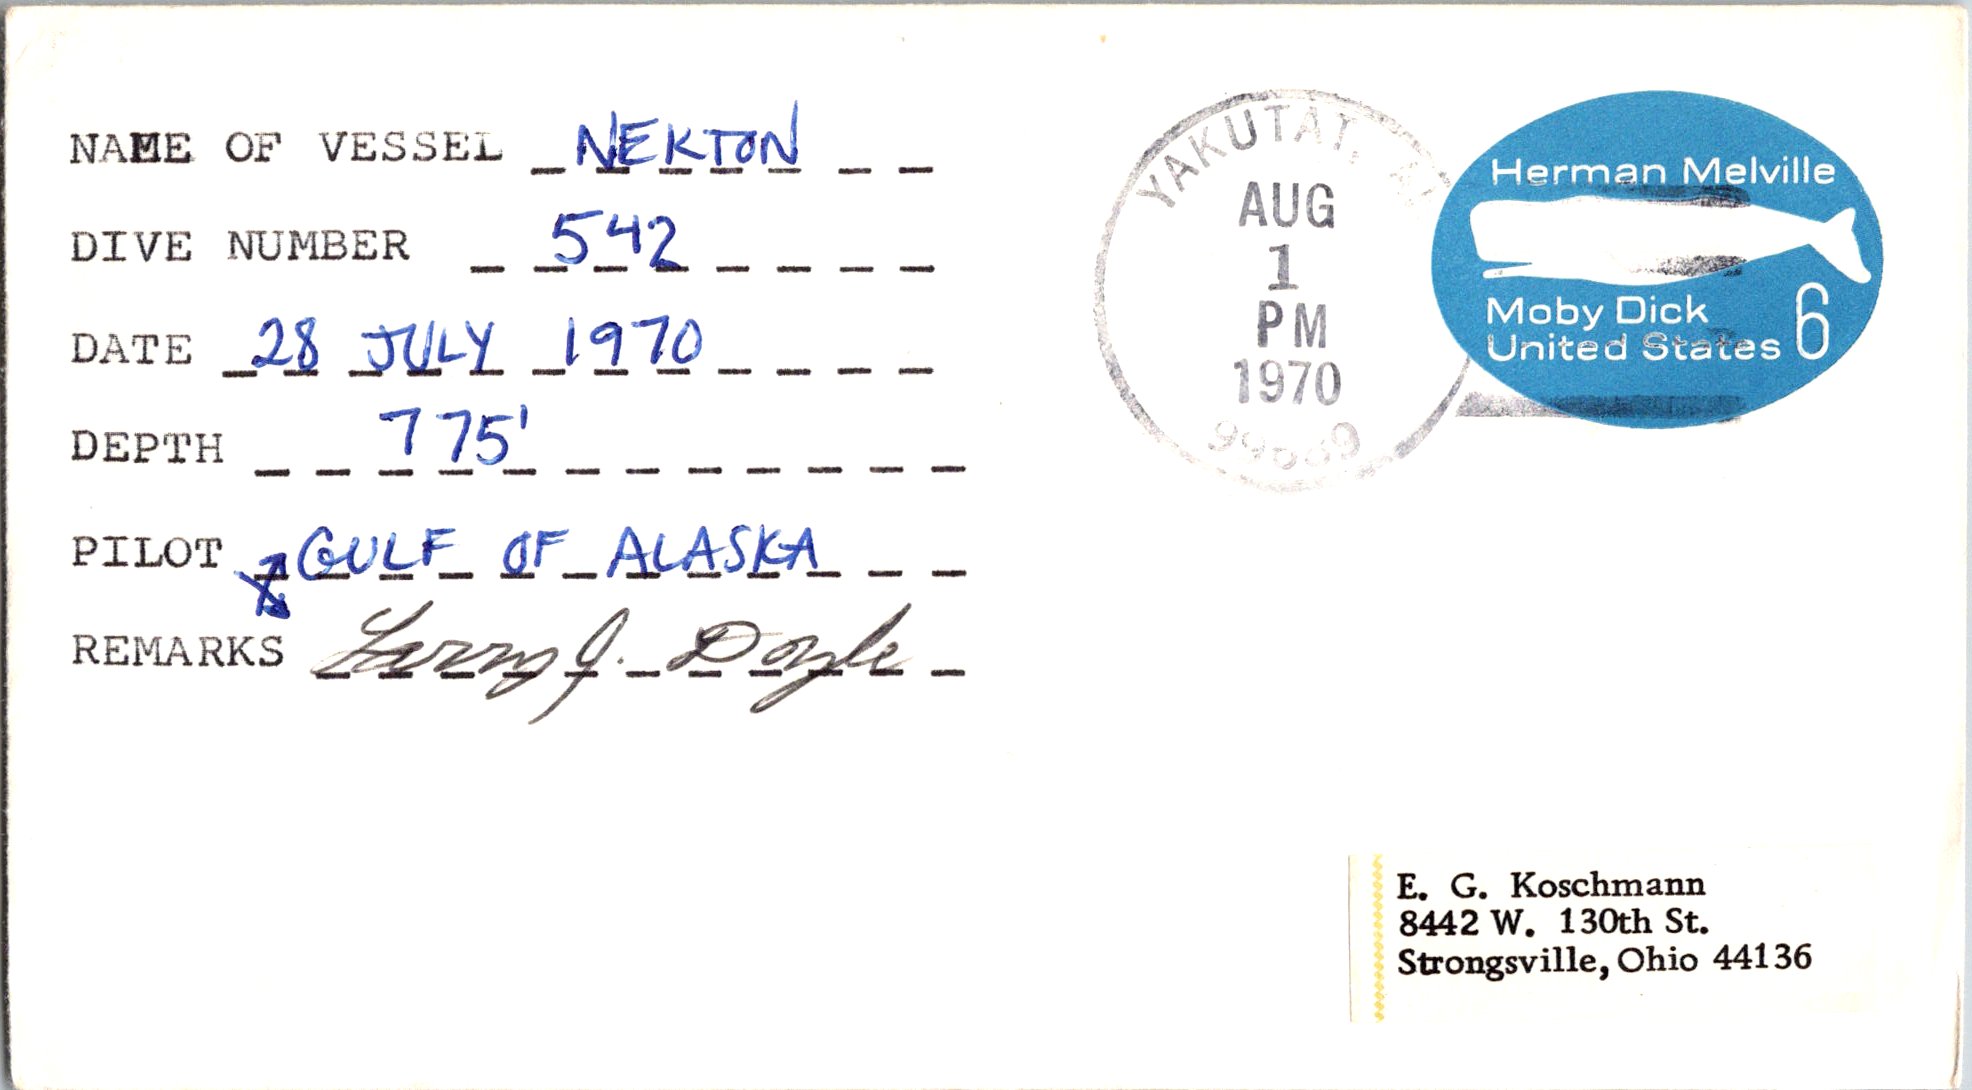 NAME OF VESSEL NEKTON
DIVE NUMBER 542
DATE 28 JULY 1970
DEPTH 775'
PILOT GULF OF ALASKA
REMARKS Larry J. Doyle
YAKUTAT,
AUG
1
PM
1970
Herman Melville
Moby Dick
United States 6
E. G. Koschmann
8442 W. 130th St.
Strongsville, Ohio 44136